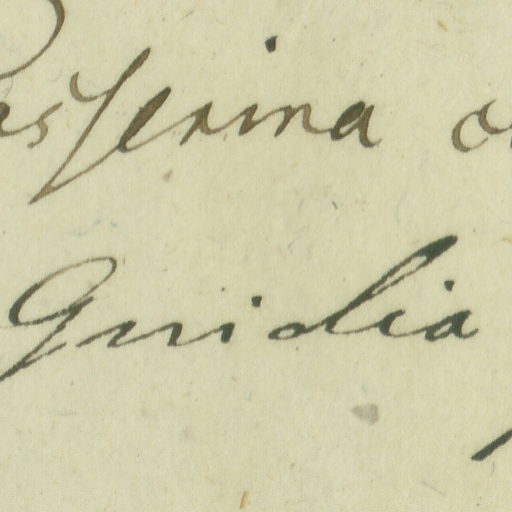 asserina o
Gnidia